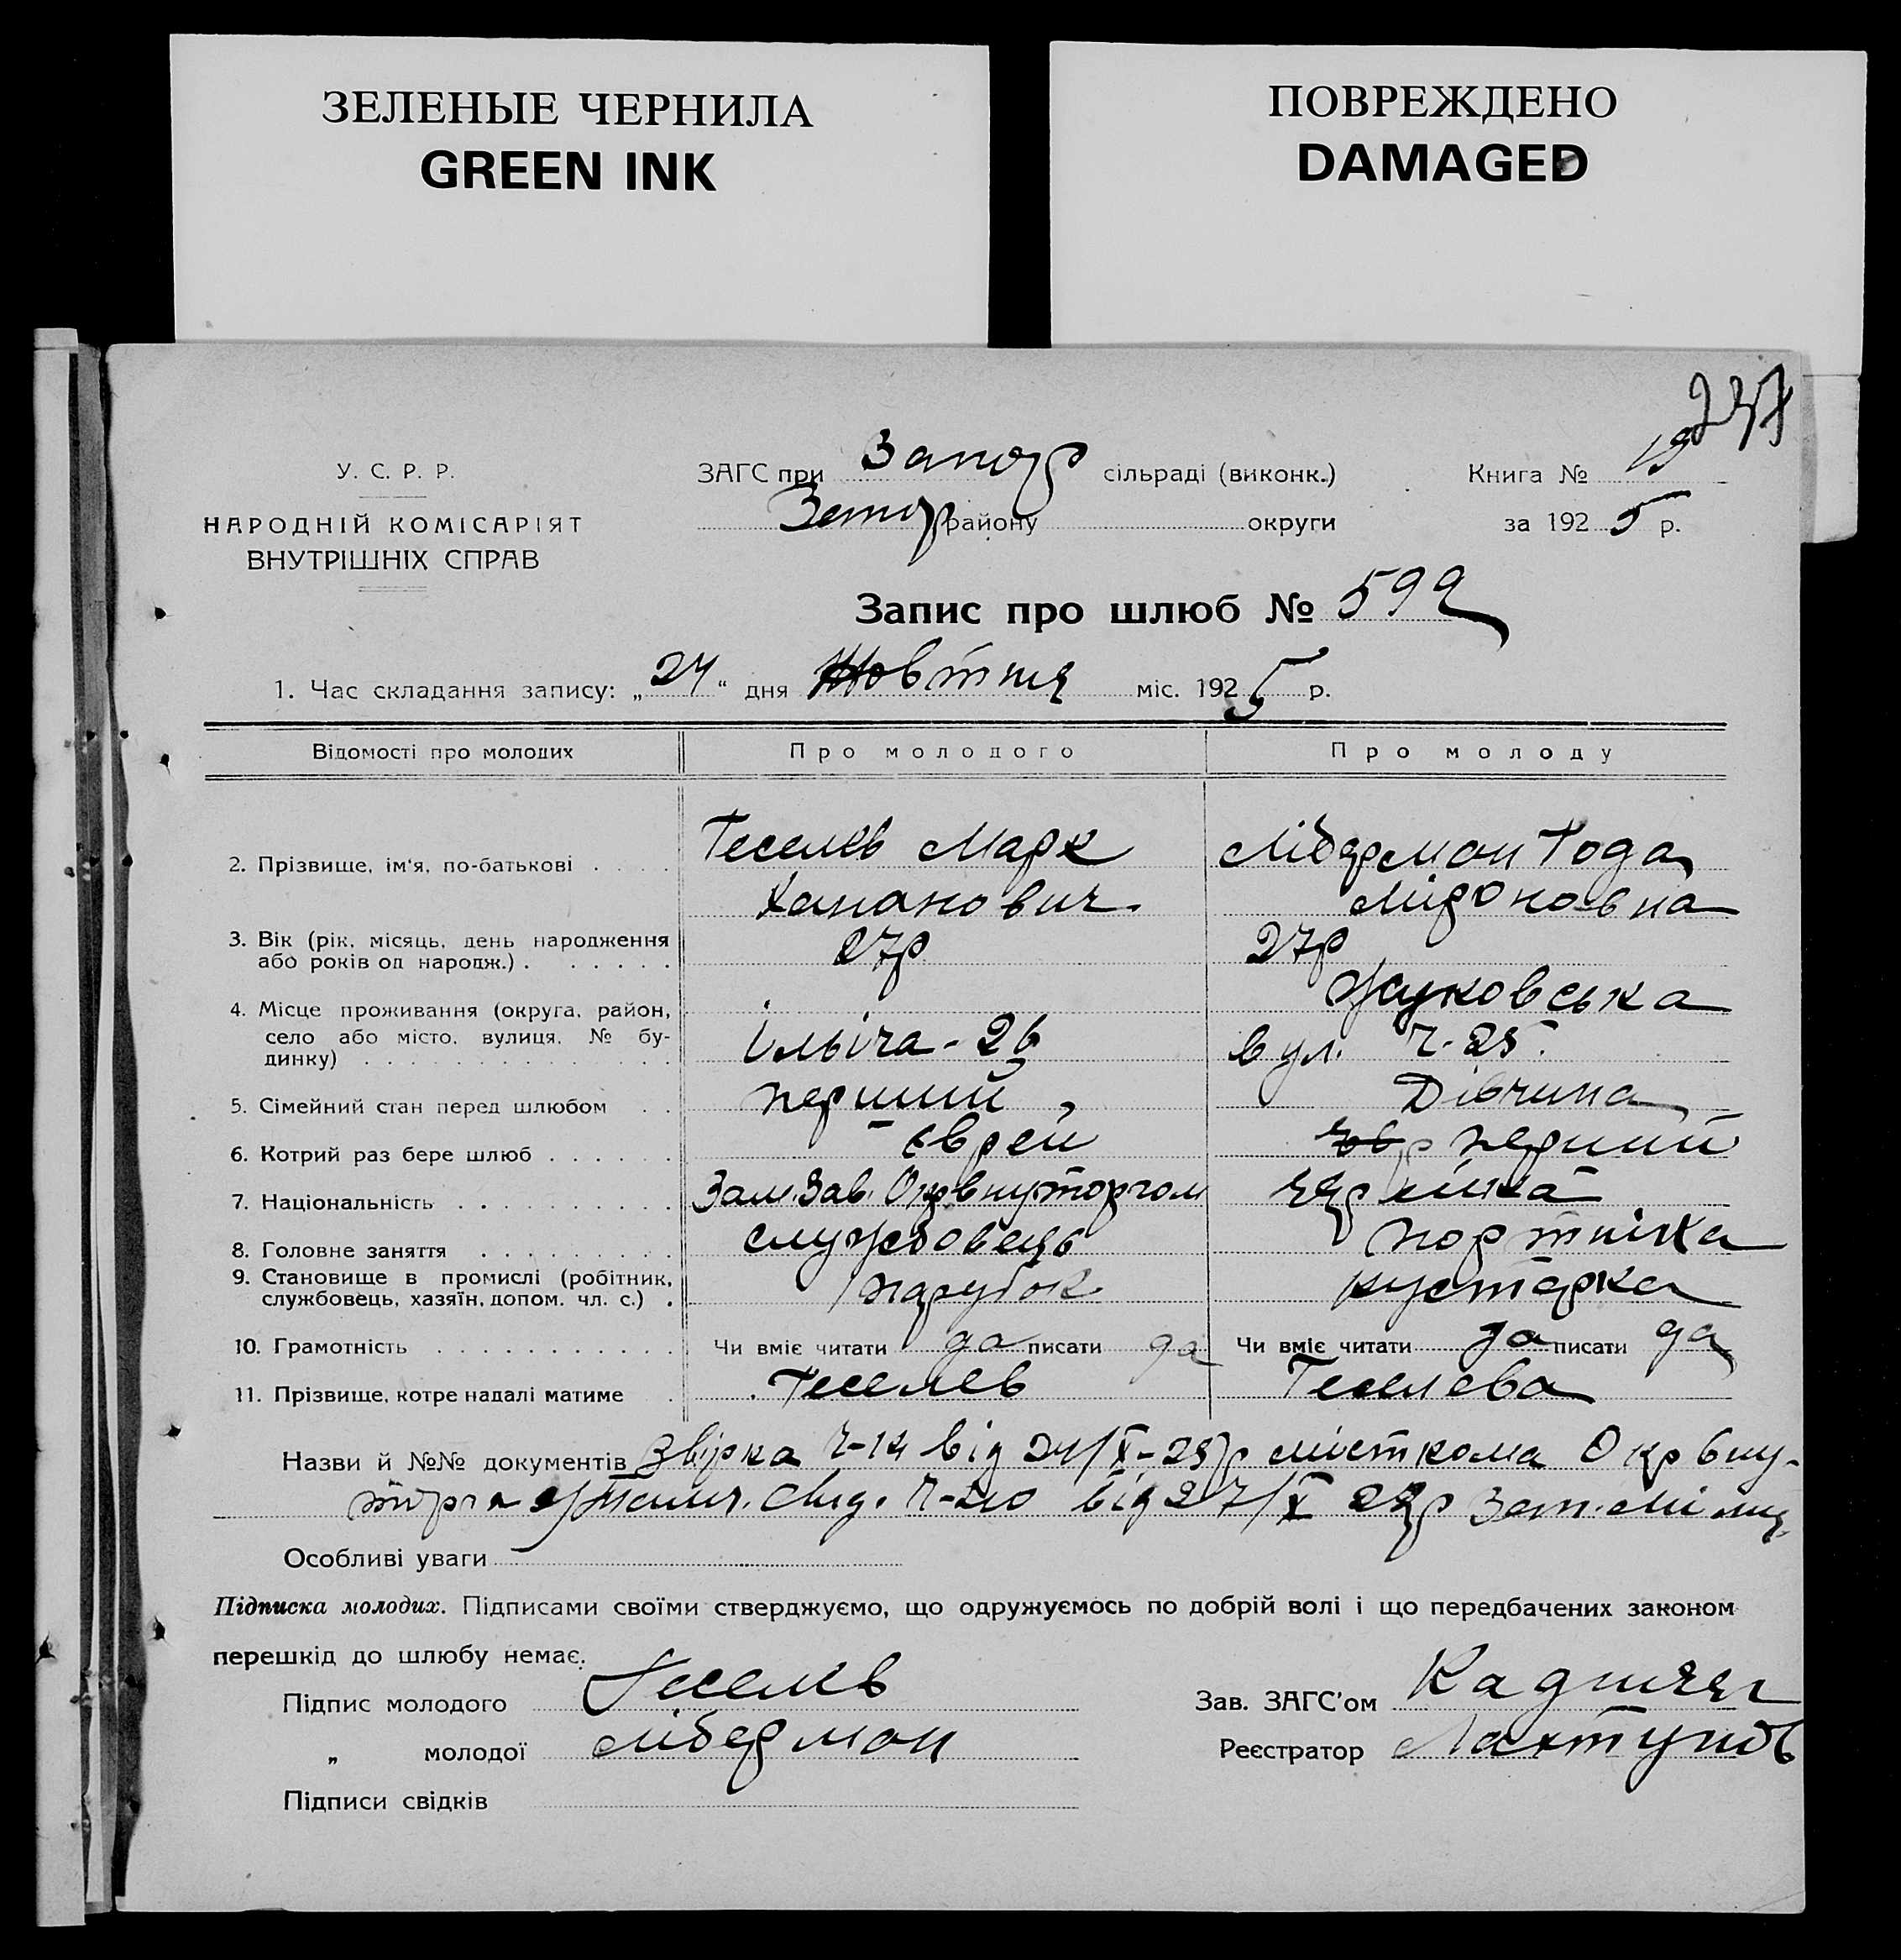 ЗЕЛЕНЫЕ ЧЕРНИЛА
GREEN INK
ПОВРЕЖДЕНО
DAMAGED
У. С. Р. Р.
НАРОДНІЙ КОМІСАРІЯТ
ВНУТРІШНІХ СПРАВ
ЗАГС при Запор сільраді (виконк.)
Запор району округи
Книга № 19
за 1925 р.
Запис про шлюб № 599
1. Час складання запису: „24“ дня Жовтня міс. 1925 р.
Відомості про молодих Про молодого Про молоду
2. Прізвище, ім'я, по-батькові Теселев Марк Ліберман
Хананович. Міроновна
3. Вік (рік, місяць, день народження 27р 27р
або років од народж.)
4. Місце проживання (округа, район, Жуковська
село або місто, вулиця, № бу- Ільіча - 26 вул. Ч-25.
динку)
5. Сімейний стан перед шлюбом перший Дівчина
6. Котрий раз бере шлюб Єврей перший
7. Національність Зам. Зав. Окрвнуторгом
8. Головне заняття службовець портніха
9. Становище в промислі (робітник, парубок кустарка
службовець, хазяїн, допом. чл. с.)
10. Грамотність Чи вміє читати да писати да Чи вміє читати да писати да
11. Прізвище, котре надалі матиме Теселев Теселева
Назви й №№ документів від 24/X-25р місткома Окрвну-
торга від 27/X Зап. Міліц.
Особливі уваги
Підписка молодих. Підписами своїми стверджуємо, що одружуємось по добрій волі і що передбачених законом
перешкід до шлюбу немає.
Підпис молодого Теселев Зав. ЗАГС'ом
„ молодої Ліберман Реєстратор
Підписи свідків